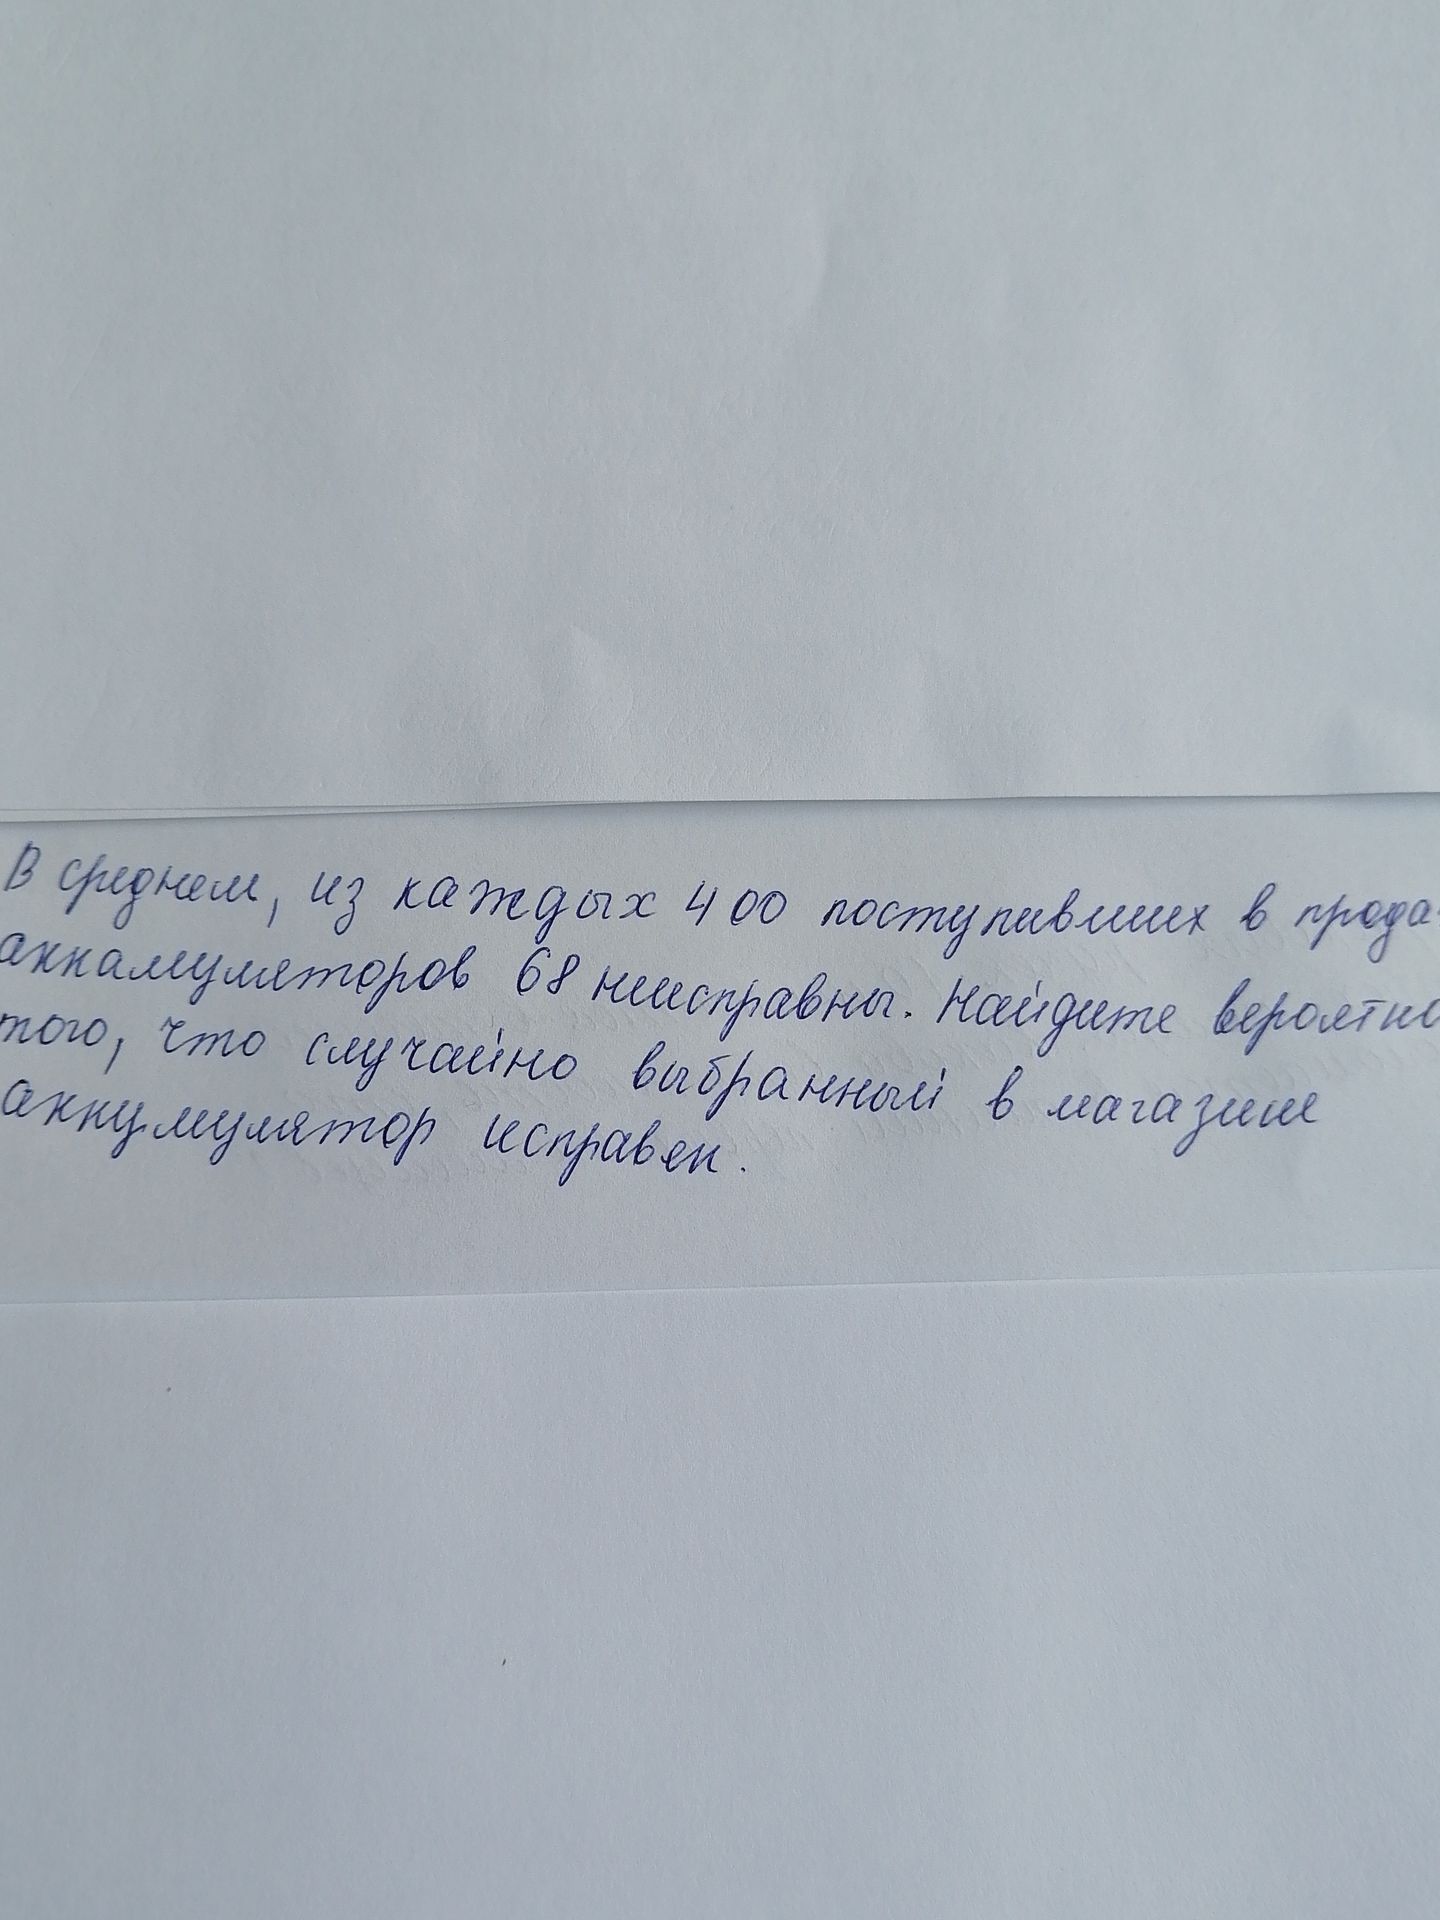 В среднем, из каждых 400 поступивших в прода
аккамуляторов 68 неисправны. Найдите вероятно
того, что случайно выбранный в магазине
аккумулятор исправен.